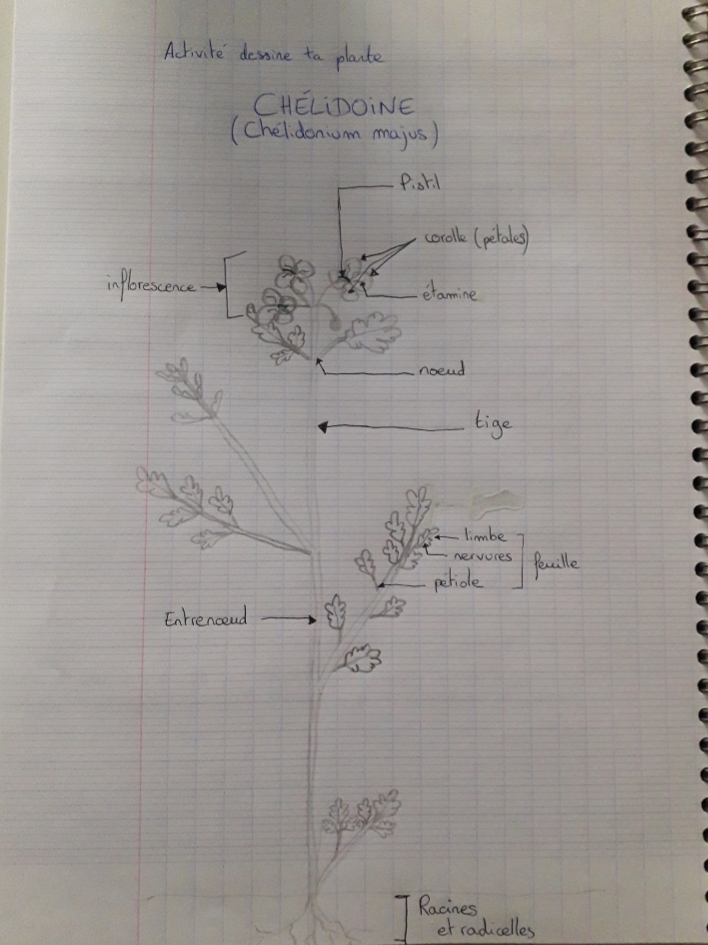 Activité dessine ta plante
CHÉLIDOINE
(Chélidonium majus)
Pistil
corolle (pétales)
inflorescence
étamine
noeud
tige
limbe
nervures
feuille
pétiole
Entrenoeud
Racines
et radicelles